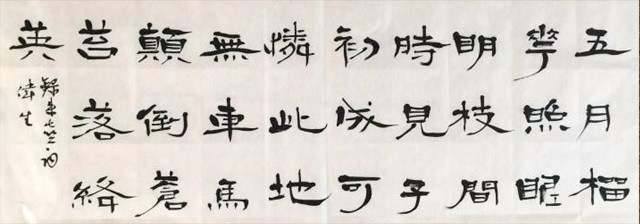 五月榴
華照眼
明枝間
時見子
初成可
憐此地
無車馬
顛倒蒼
苔落絳
英
偉生